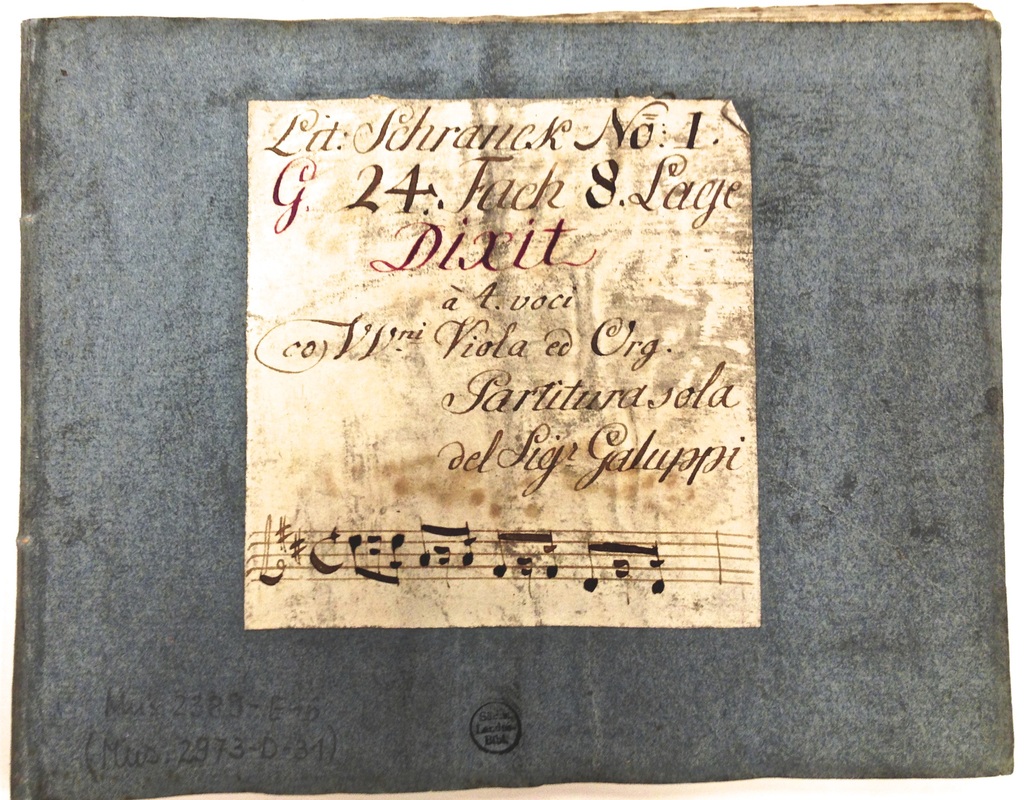 Lit: Schranck No: 1.
G. 24. Fach 8. Lage
Dixit
à 4. voci
co VVni Viola ed Org.
Partitura sola
del Sigr Galuppi
Mus. 2389-E-
(Mus. 2973-D-31)
Sächs.
Landes-
Bibl.